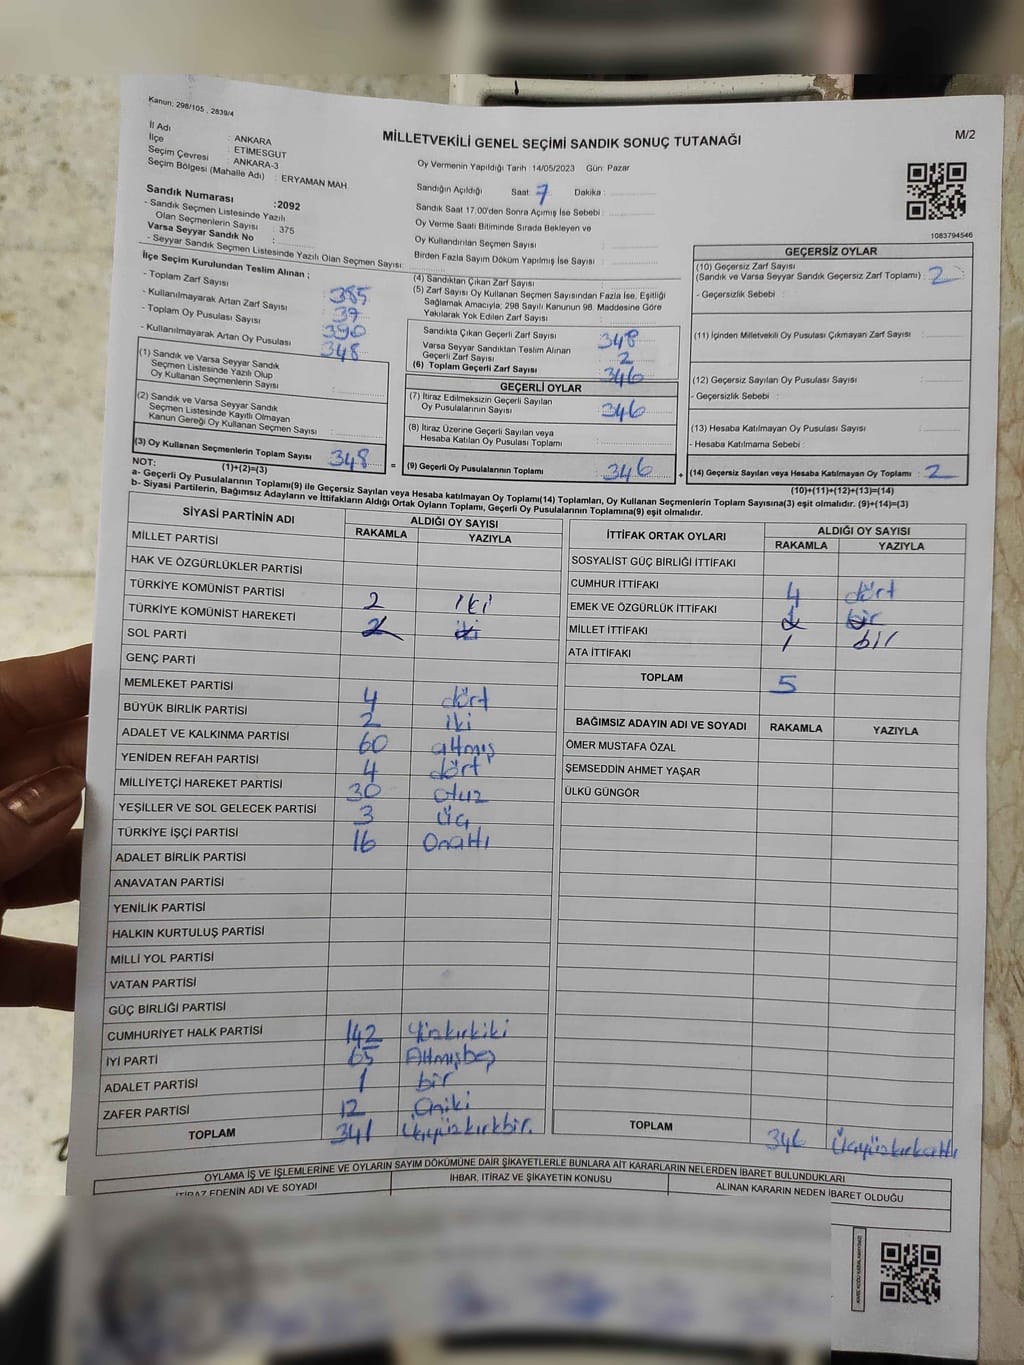 Kanun: 298/105 , 2839/4
MİLLETVEKİLİ GENEL SEÇİMİ SANDIK SONUÇ TUTANAĞI
M/2
İl Adı : ANKARA
İlçe : ETİMESGUT
Seçim Çevresi : ANKARA-3
Seçim Bölgesi (Mahalle Adı) : ERYAMAN MAH
Sandık Numarası :2092
- Sandık Seçmen Listesinde Yazılı
Olan Seçmenlerin Sayısı : 375
Varsa Seyyar Sandık No :
- Seyyar Sandık Seçmen Listesinde Yazılı Olan Seçmen Sayısı:
Oy Vermenin Yapıldığı Tarih :14/05/2023 Gün: Pazar
Sandığın Açıldığı Saat: 7 Dakika :
Sandık Saat 17.00'den Sonra Açımış İse Sebebi :
Oy Verme Saati Bitiminde Sırada Bekleyen ve
Oy Kullandırılan Seçmen Sayısı :
Birden Fazla Sayım Döküm Yapılmış İse Sayısı :
1083794546
İlçe Seçim Kurulundan Teslim Alınan ;
- Toplam Zarf Sayısı : 385
- Kullanılmayarak Artan Zarf Sayısı : 37
- Toplam Oy Pusulası Sayısı : 390
- Kullanılmayarak Artan Oy Pusulası : 348
(1) Sandık ve Varsa Seyyar Sandık
Seçmen Listesinde Yazılı Olup
Oy Kullanan Seçmenlerin Sayısı :
(2) Sandık ve Varsa Seyyar Sandık
Seçmen Listesinde Kayıtlı Olmayan
Kanun Gereği Oy Kullanan Seçmen Sayısı :
(3) Oy Kullanan Seçmenlerin Toplam Sayısı : 348
(1)+(2)=(3)
(4) Sandıktan Çıkan Zarf Sayısı :
(5) Zarf Sayısı Oy Kullanan Seçmen Sayısından Fazla İse, Eşitliği
Sağlamak Amacıyla; 298 Sayılı Kanunun 98. Maddesine Göre
Yakılarak Yok Edilen Zarf Sayısı :
Sandıkta Çıkan Geçerli Zarf Sayısı : 348
Varsa Seyyar Sandıktan Teslim Alınan
Geçerli Zarf Sayısı : 2
(6) Toplam Geçerli Zarf Sayısı : 346
GEÇERLİ OYLAR
(7) İtiraz Edilmeksizin Geçerli Sayılan
Oy Pusulalarının Sayısı : 346
(8) İtiraz Üzerine Geçerli Sayılan veya
Hesaba Katılan Oy Pusulası Toplamı :
= (9) Geçerli Oy Pusulalarının Toplamı : 346 +
GEÇERSİZ OYLAR
(10) Geçersiz Zarf Sayısı
(Sandık ve Varsa Seyyar Sandık Geçersiz Zarf Toplamı) : 2
- Geçersizlik Sebebi :
(11) İçinden Milletvekili Oy Pusulası Çıkmayan Zarf Sayısı :
(12) Geçersiz Sayılan Oy Pusulası Sayısı :
- Geçersizlik Sebebi :
(13) Hesaba Katılmayan Oy Pusulası Sayısı :
- Hesaba Katılmama Sebebi :
(14) Geçersiz Sayılan veya Hesaba Katılmayan Oy Toplamı : 2
(10)+(11)+(12)+(13)=(14)
NOT:
a- Geçerli Oy Pusulalarının Toplamı(9) ile Geçersiz Sayılan veya Hesaba katılmayan Oy Toplamı(14) Toplamları, Oy Kullanan Seçmenlerin Toplam Sayısına(3) eşit olmalıdır. (9)+(14)=(3)
b- Siyasi Partilerin, Bağımsız Adayların ve İttifakların Aldığı Ortak Oyların Toplamı, Geçerli Oy Pusulalarının Toplamına(9) eşit olmalıdır.
SİYASİ PARTİNİN ADI ALDIĞI OY SAYISI
RAKAMLA YAZIYLA
MİLLET PARTİSİ
HAK VE ÖZGÜRLÜKLER PARTİSİ
TÜRKİYE KOMÜNİST PARTİSİ 2 iki
TÜRKİYE KOMÜNİST HAREKETİ 2 iki
SOL PARTİ
GENÇ PARTİ
MEMLEKET PARTİSİ 4 dört
BÜYÜK BİRLİK PARTİSİ 2 iki
ADALET VE KALKINMA PARTİSİ 60 altmış
YENİDEN REFAH PARTİSİ 4 dört
MİLLİYETÇİ HAREKET PARTİSİ 30 otuz
YEŞİLLER VE SOL GELECEK PARTİSİ 3 üç
TÜRKİYE İŞÇİ PARTİSİ 16 Onaltı
ADALET BİRLİK PARTİSİ
ANAVATAN PARTİSİ
YENİLİK PARTİSİ
HALKIN KURTULUŞ PARTİSİ
MİLLİ YOL PARTİSİ
VATAN PARTİSİ
GÜÇ BİRLİĞİ PARTİSİ
CUMHURİYET HALK PARTİSİ 142 Yüzkırkiki
İYİ PARTİ 65 Altmışbeş
ADALET PARTİSİ 1 bir
ZAFER PARTİSİ 12 Oniki
TOPLAM 341 Üçyüzkırkbir.
İTTİFAK ORTAK OYLARI ALDIĞI OY SAYISI
RAKAMLA YAZIYLA
SOSYALİST GÜÇ BİRLİĞİ İTTİFAKI
CUMHUR İTTİFAKI 4 dört
EMEK VE ÖZGÜRLÜK İTTİFAKI 1 bir
MİLLET İTTİFAKI 1 bir
ATA İTTİFAKI
TOPLAM 5
BAĞIMSIZ ADAYIN ADI VE SOYADI RAKAMLA YAZIYLA
ÖMER MUSTAFA ÖZAL
ŞEMSEDDİN AHMET YAŞAR
ÜLKÜ GÜNGÖR
TOPLAM 346 Üçyüzkırkaltı
OYLAMA İŞ VE İŞLEMLERİNE VE OYLARIN SAYIM DÖKÜMÜNE DAİR ŞİKAYETLERLE BUNLARA AİT KARARLARIN NELERDEN İBARET BULUNDUKLARI
İTİRAZ EDENİN ADI VE SOYADI
İHBAR, İTİRAZ VE ŞİKAYETİN KONUSU
ALINAN KARARIN NEDEN İBARET OLDUĞU